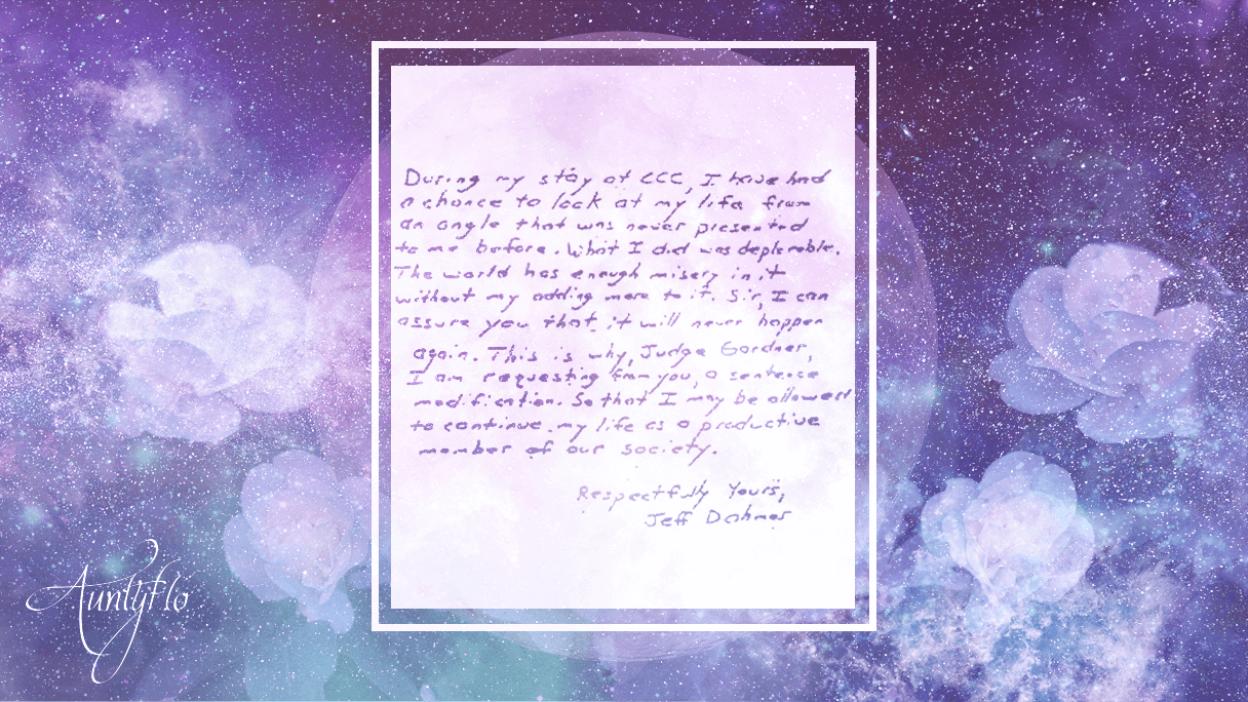 During my stay at CCC, I have had
a chance to look at my life from
an angle that was never presented
to me before. What I did was deplorable.
The world has enough misery in it
without my adding more to it. Sir, I can
assure you that it will never happen
again. This is why, Judge Gardner,
I am requesting from you, a sentence
modification. So that I may be allowed
to continue my life as a productive
member of our society.
Respectfully Yours,
Jeff Dahmer
Auntyflo